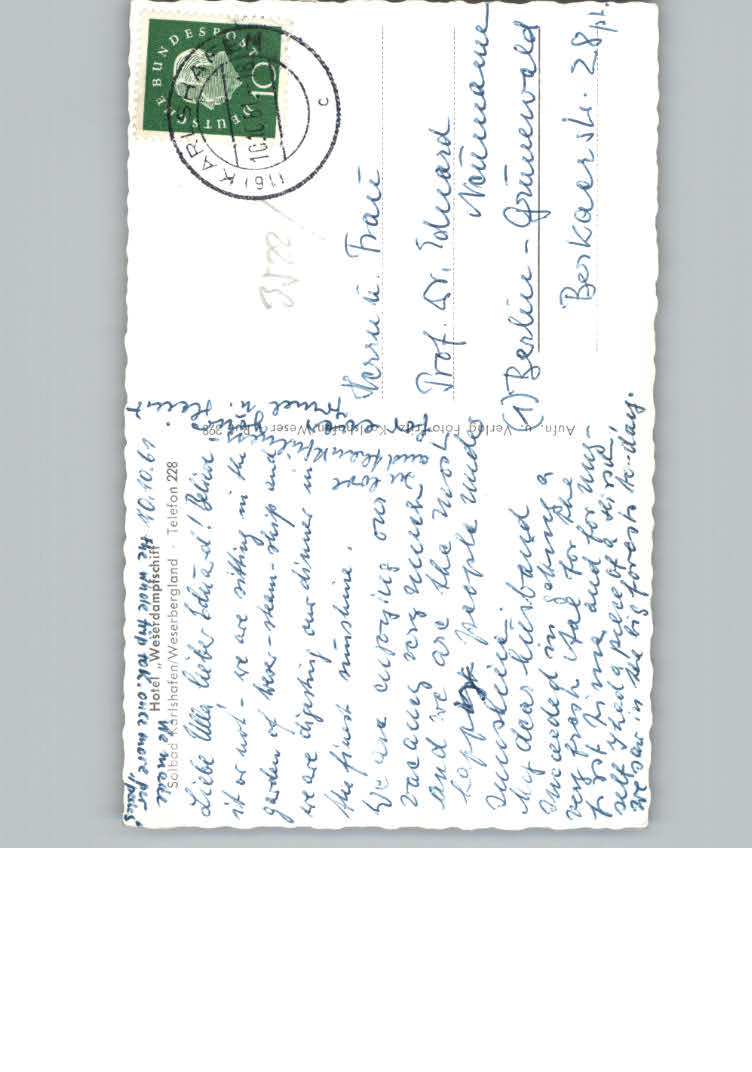 Hotel „Weserdampfschiff"
Solbad Karlshafen/Weserbergland · Telefon 228
10.10.61
Liebe lieber Eduard! Believe
it or not – we are sitting in the
garden of Weser-steam-ship and
we are digesting our dinner in
the finest sunshine.
We are enjoying our
vacancy very much
and we are the most
happy people under
sunshine.
My dear husband
succeeded in getting a
very fresh for the
first time and for my-
self I had a piece of a
We saw in the big forests to-day.
We made
the whole trip once more per
in love
and thankfulness
Aufn. u. Verlag Foto-Fritz, Karlshafen/Weser
298
DEUTSCHE BUNDESPOST
10
(16) KARLSHAFEN
10.10.61
c
Herrn u. Frau
Prof. Dr. Eduard
Neumann
(1) Berlin-Grunewald
Berkaerstr. 28 pt.